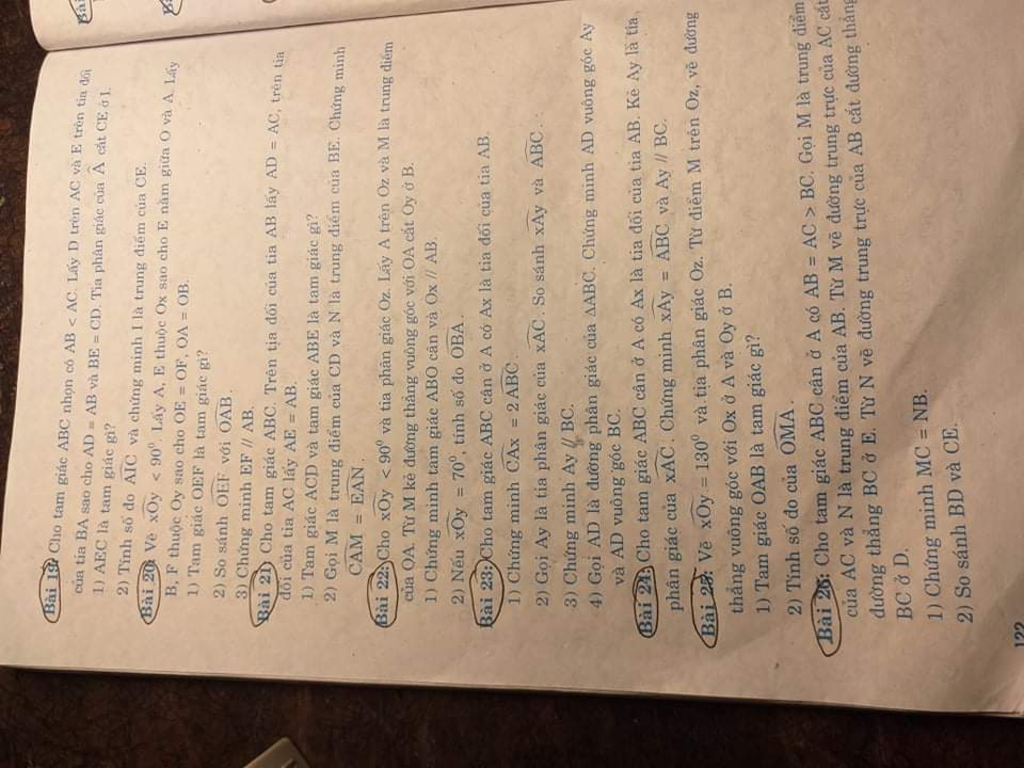 Bài
Bài 19: Cho tam giác ABC nhọn có AB < AC. Lấy D trên AC và E trên tia đối
của tia BA sao cho AD = AB và BE = CD. Tia phân giác của Â cắt CE ở I.
1) AEC là tam giác gì?
2) Tính số đo AIC và chứng minh I là trung điểm của CE.
Bài 20: Vẽ xOy < 90⁰. Lấy A, E thuộc Ox sao cho E nằm giữa O và A. Lấy
B, F thuộc Oy sao cho OE = OF, OA = OB.
1) Tam giác OEF là tam giác gì?
2) So sánh OEF với OAB.
3) Chứng minh EF // AB.
Bài 21: Cho tam giác ABC. Trên tia đối của tia AB lấy AD = AC, trên tia
đối của tia AC lấy AE = AB.
1) Tam giác ACD và tam giác ABE là tam giác gì?
2) Gọi M là trung điểm của CD và N là trung điểm của BE. Chứng minh
CAM = EAN.
Bài 22: Cho xOy < 90⁰ và tia phân giác Oz. Lấy A trên Oz và M là trung điểm
của OA. Từ M kẻ đường thẳng vuông góc với OA cắt Oy ở B.
1) Chứng minh tam giác ABO cân và Ox // AB.
2) Nếu xOy = 70⁰, tính số đo OBA.
Bài 23: Cho tam giác ABC cân ở A có Ax là tia đối của tia AB.
1) Chứng minh CAx = 2ABC.
2) Gọi Ay là tia phân giác của xAC. So sánh xAy và ABC.
3) Chứng minh Ay // BC.
4) Gọi AD là đường phân giác của ΔABC. Chứng minh AD vuông góc Ay
và AD vuông góc BC.
Bài 24: Cho tam giác ABC cân ở A có Ax là tia đối của tia AB. Kẻ Ay là tia
phân giác của xAC. Chứng minh xAy = ABC và Ay // BC.
Bài 25: Vẽ xOy = 130⁰ và tia phân giác Oz. Từ điểm M trên Oz, vẽ đường
thẳng vuông góc với Ox ở A và Oy ở B.
1) Tam giác OAB là tam giác gì?
2) Tính số đo của OMA.
Bài 26: Cho tam giác ABC cân ở A có AB = AC > BC. Gọi M là trung điểm
của AC và N là trung điểm của AB. Từ M vẽ đường trung trực của AC cắt
đường thẳng BC ở E. Từ N vẽ đường trung trực của AB cắt đường thẳng
BC ở D.
1) Chứng minh MC = NB.
2) So sánh BD và CE.
122